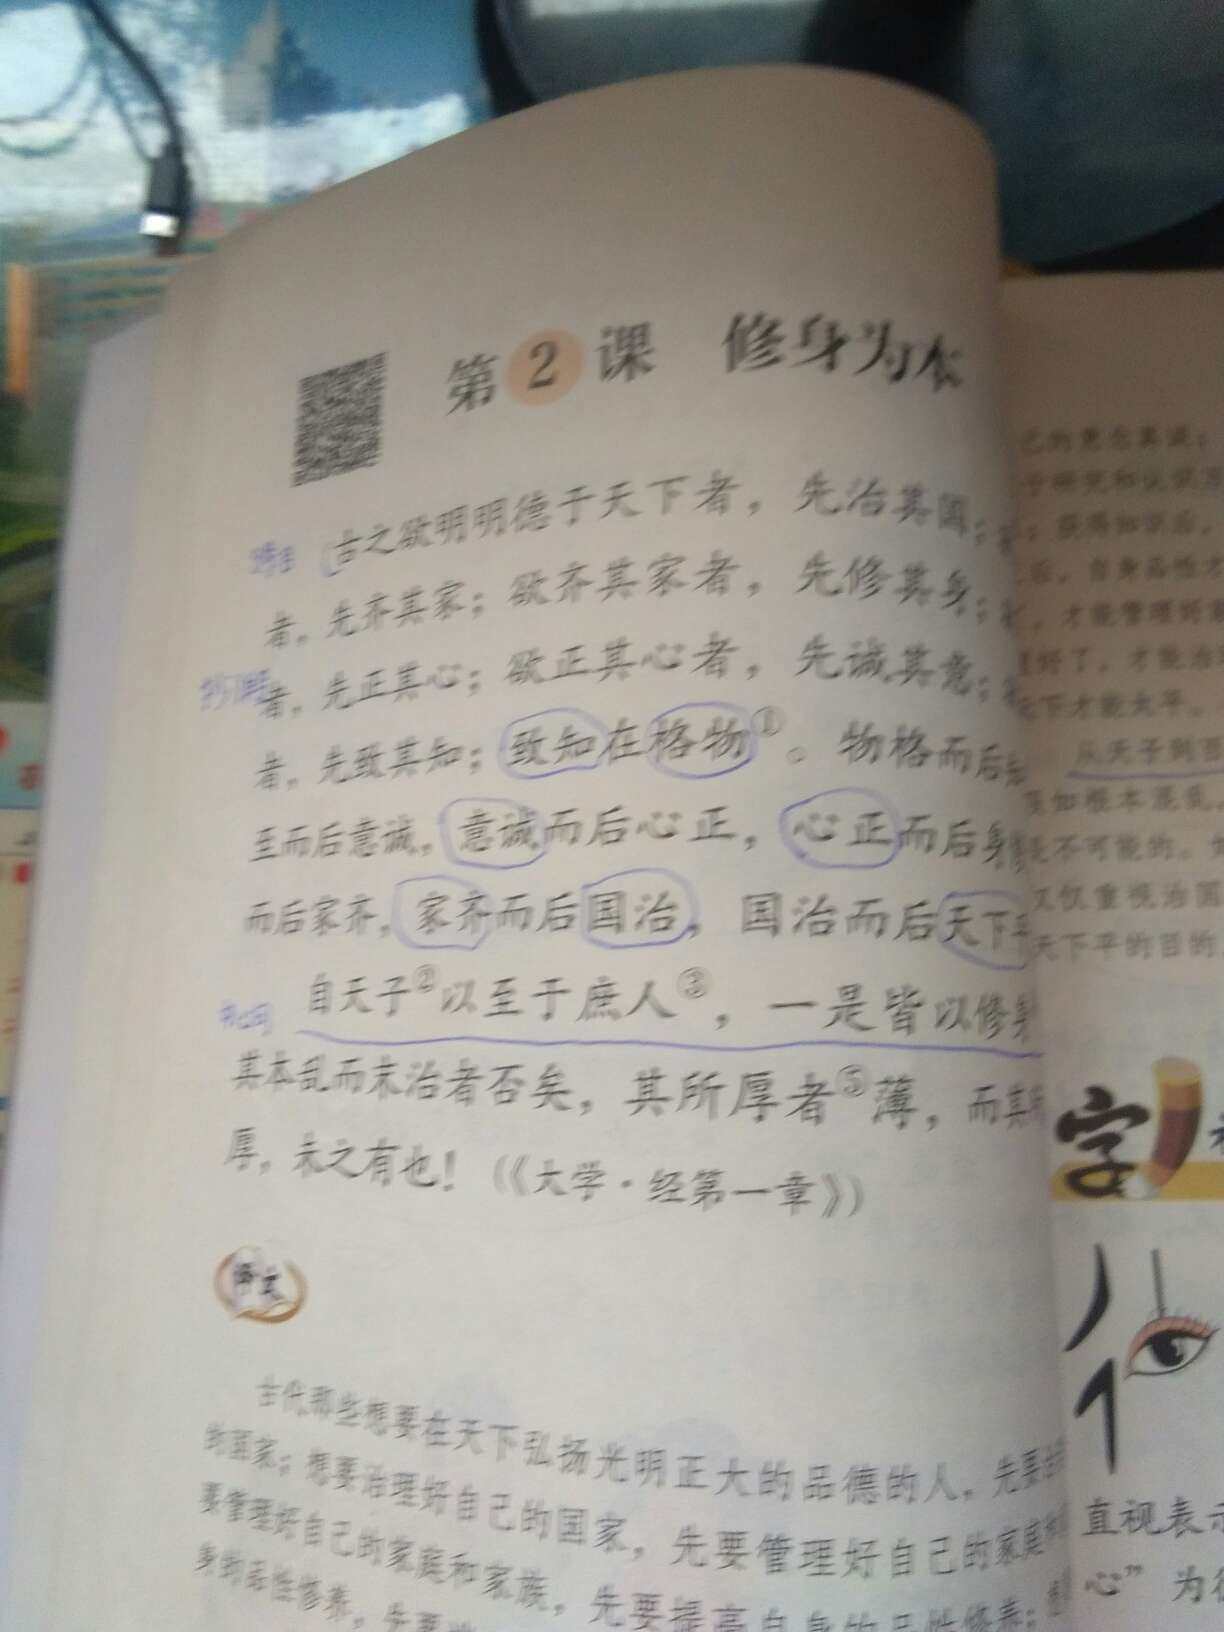 第2课 修身为本
古之欲明明德于天下者，先治其国；
者，先齐其家；欲齐其家者，先修其身；
者，先正其心；欲正其心者，先诚其意；
者，先致其知；致知在格物①。物格而后
至而后意诚，意诚而后心正，心正而后身
而后家齐，家齐而后国治，国治而后天下平
自天子②以至于庶人③，一是皆以修身
其本乱而末治者否矣，其所厚者⑤薄，而其所
厚，未之有也！（《大学·经第一章》）
译文
古代那些想要在天下弘扬光明正大的品德的人，先要治
的国家；想要治理好自己的国家，先要管理好自己的家庭
要管理好自己的家庭和家族，先要提高自身的品性修养；
身的品性修养，先要
己的意念真诚；
于研究和认识万
；获得知识后，
后，自身品性才
，才能管理好家
好了，才能治
天下才能太平。
从天子到百
果如根本混乱，
是不可能的。
仅重视治国
天下平的目的
字
直视表示
心”为